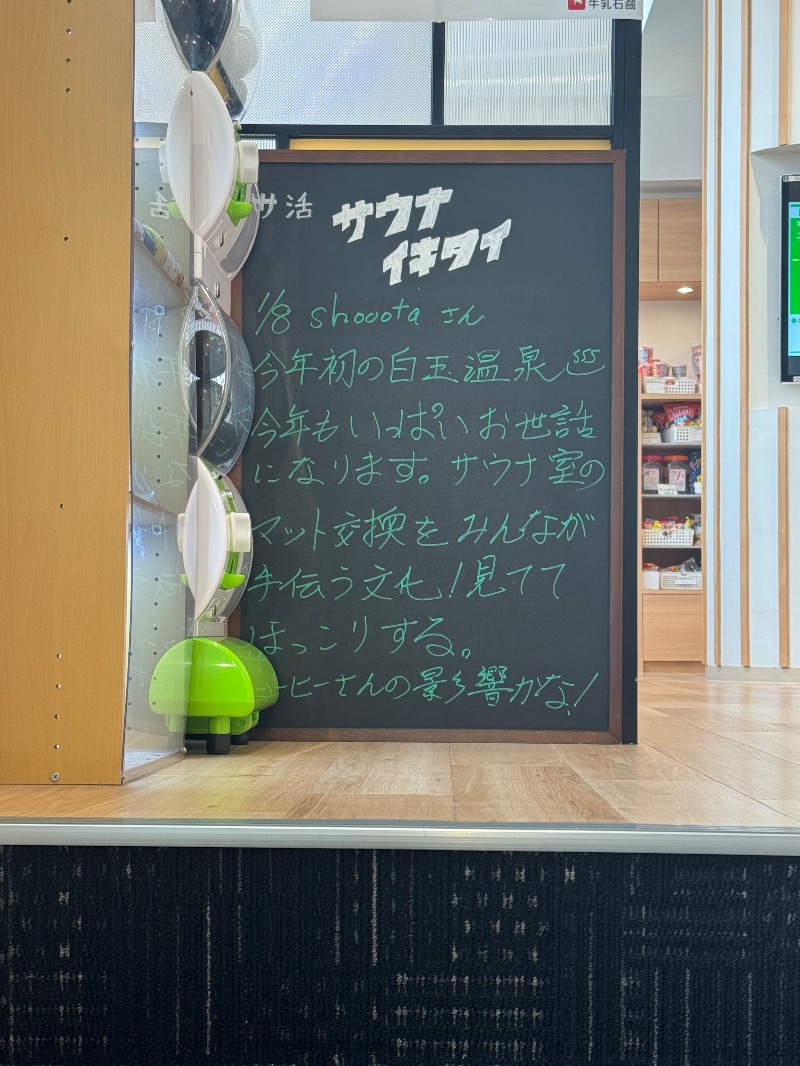 牛乳石鹸
サ活
サウナ
イキタイ
1/8 shooota さん
今年初の白玉温泉♨
今年もいっぱいお世話
になります。サウナ室の
マット交換をみんなが
手伝う文化!見てて
ほっこりする。
コーヒーさんの影響かな!